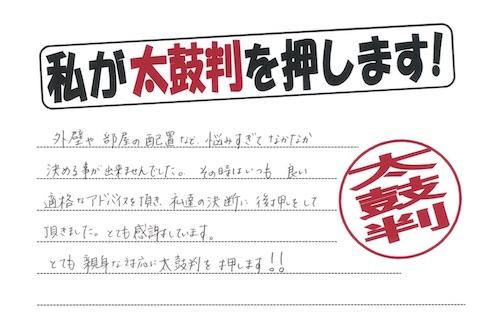 私が太鼓判を押します!
外壁や部屋の配置など、悩みすぎてなかなか
決める事が出来ませんでした。その時はいつも良い
適格なアドバイスを頂き、私達の決断に後押をして
頂きました。とても感謝しています。
とても親身な対応に太鼓判を押します!!
太鼓判